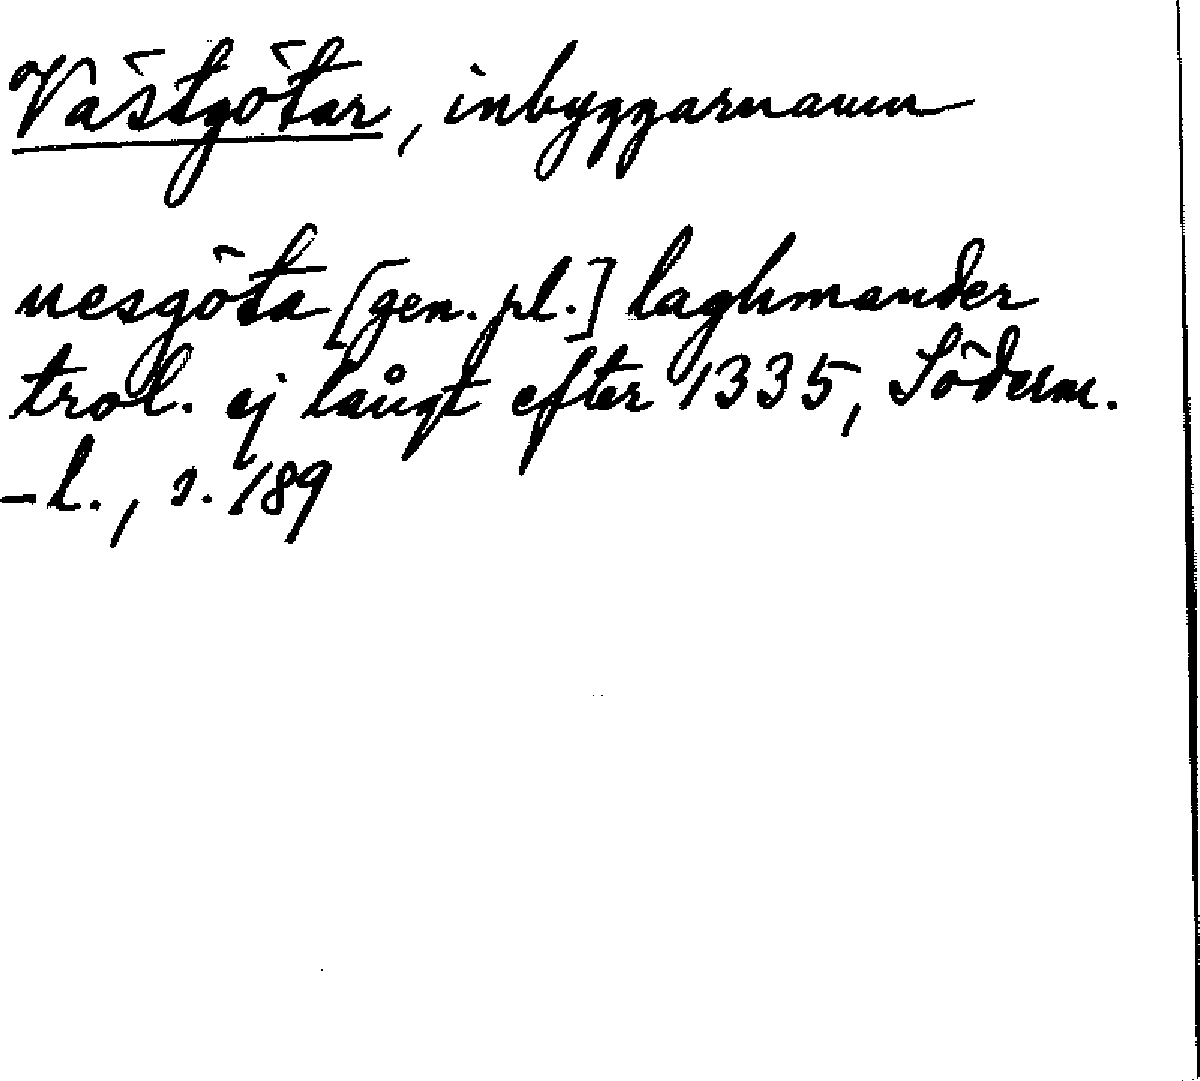 Västgötar, inbyggarnamn
uesgöta [gen. pl.] laghmander
trol. ej långt efter 1335, Söderm.
-l., s. 189